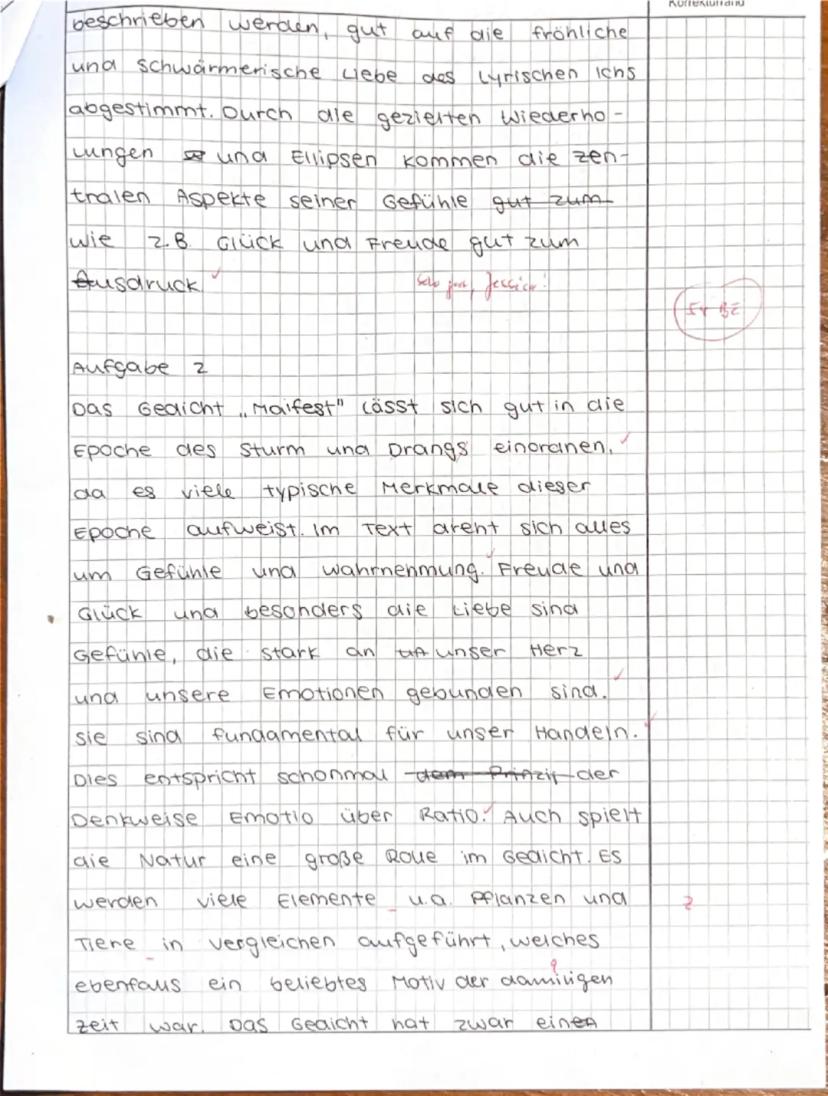 Korrekturrand
beschrieben werden, gut auf die fröhliche
und schwärmerische Liebe des Lyrischen Ichs
abgestimmt. Durch die gezielten Wiederho-
lungen und Ellipsen kommen die zen-
tralen Aspekte seiner Gefühle gut zum
wie z.B. Glück und Freude gut zum
Ausdruck
Sehr gut, Jessica!
BE
Aufgabe 2
Das Gedicht „Maifest" lässt sich gut in die
Epoche des Sturm und Drangs einordnen,
da es viele typische Merkmale dieser
Epoche aufweist. Im Text dreht sich alles
um Gefühle und Wahrnehmung. Freude und
Glück und besonders die Liebe sind
Gefühle, die stark an unser Herz
und unsere Emotionen gebunden sind.
Sie sind fundamental für unser Handeln.
Dies entspricht schonmal dem Prinzip der
Denkweise Emotio über Ratio. Auch spielt
die Natur eine große Rolle im Gedicht. Es
werden viele Elemente u.a. Pflanzen und
Z
Tiere in vergleichen aufgeführt, welches
ebenfalls ein beliebtes Motiv der damiligen
zeit war. Das Gedicht hat zwar einen